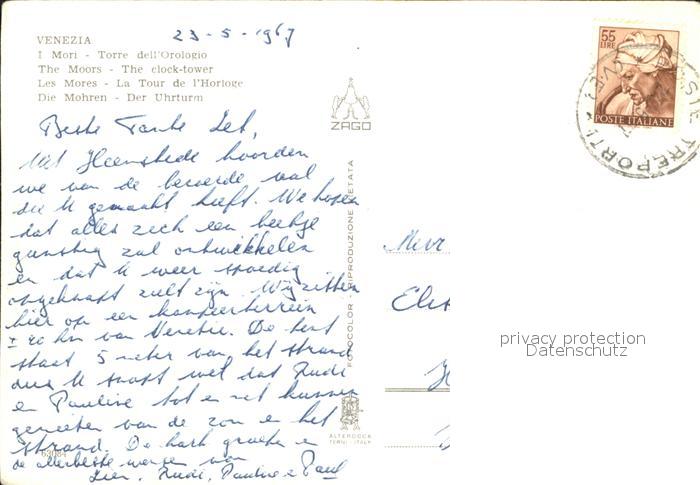 23-5-1967
VENEZIA
I Mori - Torre dell'Orologio
The Moors - The clock-tower
Les Mores - La Tour de l'Horloge
Die Mohren - Der Uhrturm
Beste Tante Bet,
Uit Heemstede hoorden
we van de beroerde val
die U gemaakt heeft. We hopen
dat alles zich een beetje
gunstig zal ontwikkelen
en dat U weer spoedig
opgeknapt zult zijn. Wij zitten
hier op een kampeerterrein
± 20 km van Venetie. De tent
staat 5 meter van het strand
dus U snapt wel dat Rudi
en Pauline tot en met kunnen
genieten van de zon en het
strand. De hart. groeten en
de allerbeste wensen van
Rudi, Pauline & Paul
63084
ZAGO
FOTOCOLOR - RIPRODUZIONE VIETATA
ALTEROCCA
TERNI - ITALY
55
LIRE
POSTE ITALIANE
TREPORTI
Mevr
privacy protection
Datenschutz